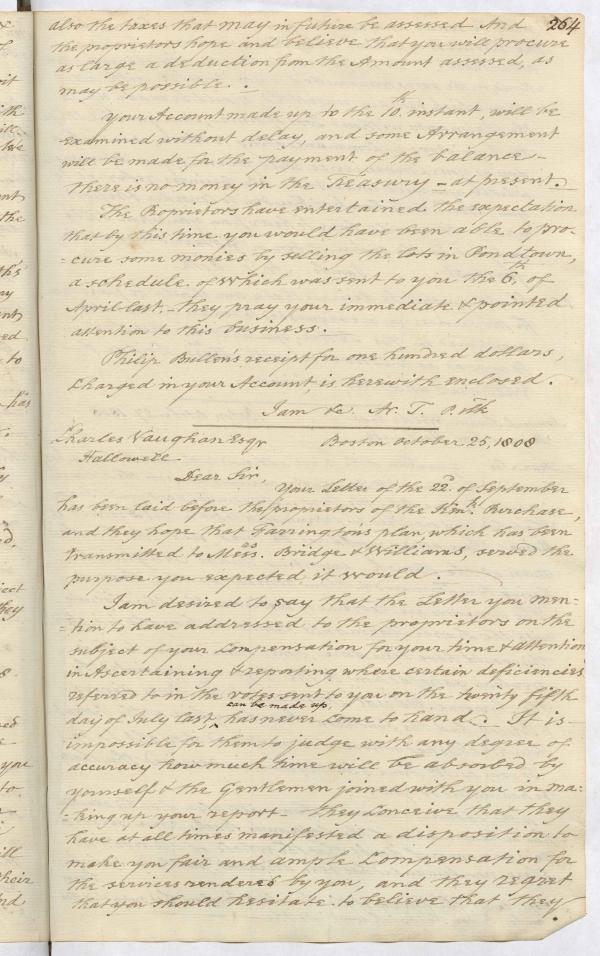 264
also the taxes that may in future be assessed And
the proprietors hope and believe that you will procure
as large a deduction from the Amount assessed, as
may be possible.
Your Account made up to the 10th instant, will be
examined without delay, and some Arrangement
will be made for the payment of the balance -
there is no money in the Treasury - at present.
The Proprietors have entertained the expectation
that by this time you would have been able to pro-
=cure some monies by selling the lots in Pondtown,
a schedule of which was sent to you the 6th of
April last. - they pray your immediate & pointed
attention to this business.
Philip Bullen's receipt for one hundred dollars,
charged in your Account, is herewith enclosed.
I am &c. Ar. T.
Charles Vaughan Esqr Boston October 25, 1808
Hallowell
Dear Sir,
Your Letter of the 22d. of September
has been laid before the proprietors of the Kenk. Purchase,
and they hope that Farrington's plan, which has been
transmitted to Mess. Bridge & Williams, served the
purpose you expected it would.
I am desired to say that the Letter you men-
=tion to have addressed to the proprietors on the
subject of your Compensation for your time & attention
in Ascertaining & reporting where certain deficiencies
referred to in the votes sent to you on the twenty fifth
can be made up,
day of July last, ^ has never come to hand. It is
impossible for them to judge with any degree of
accuracy how much time will be absorbed by
yourself & the Gentlemen joined with you in ma-
=king up your report - they conceive that they
have at all times manifested a disposition to
make you fair and ample Compensation for
the services rendered by you, and they regret
that you should hesitate to believe that they